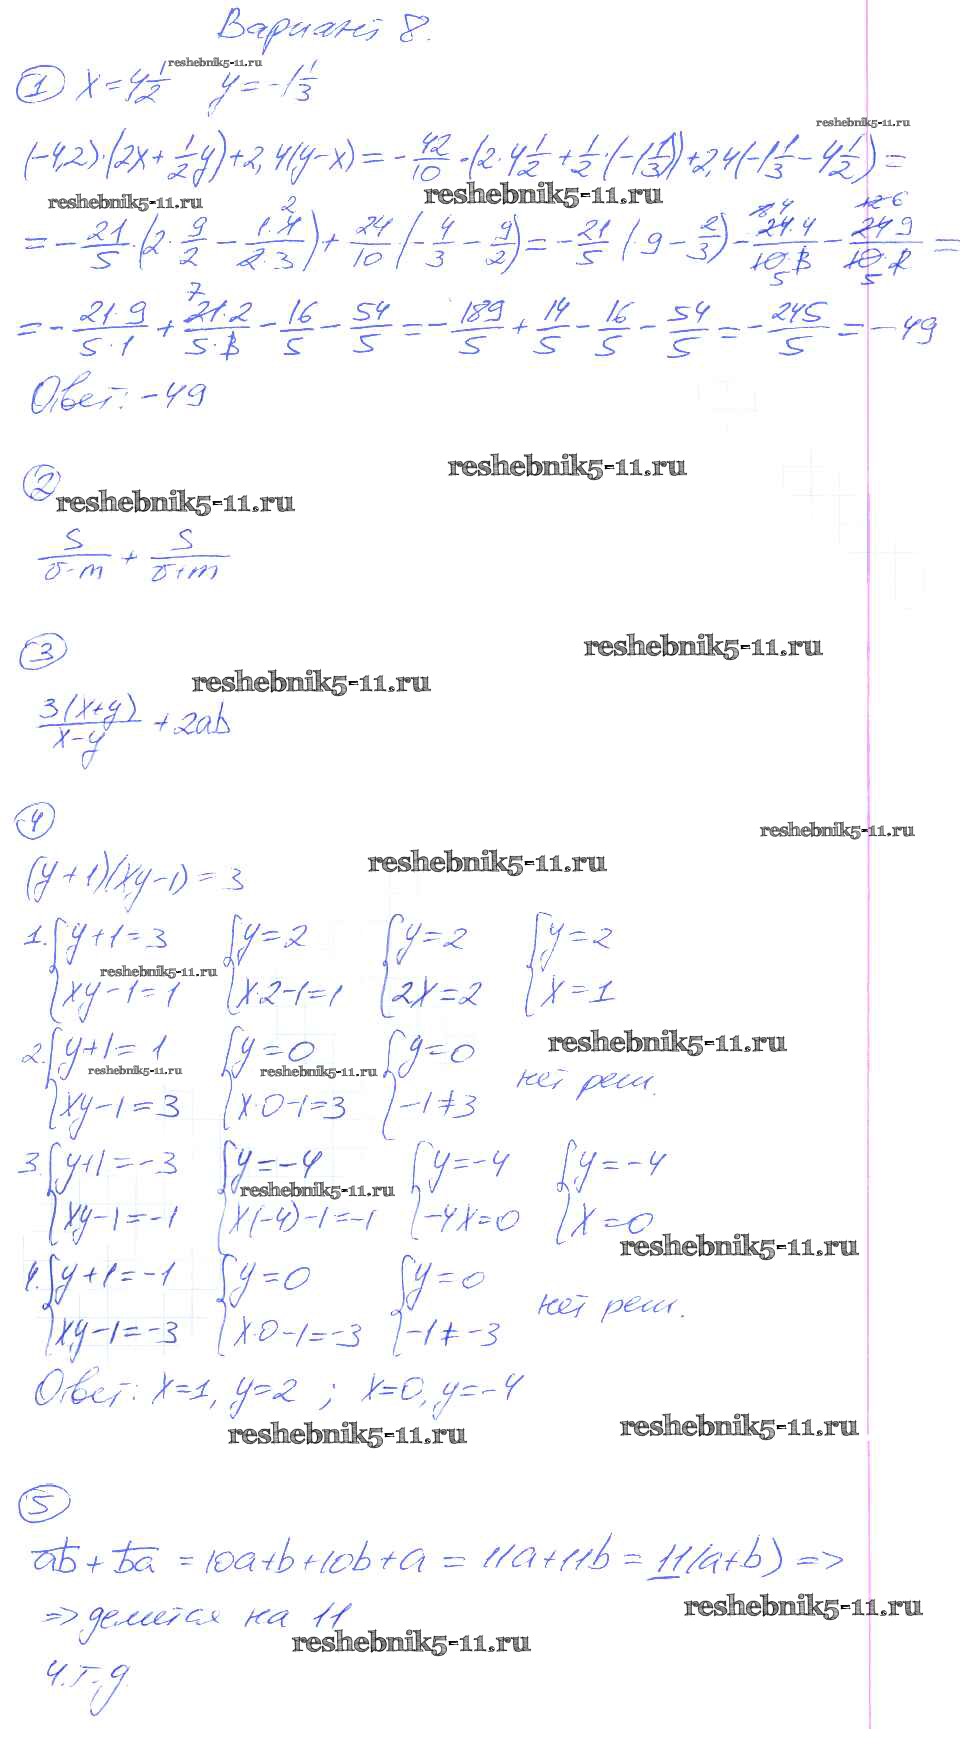 Вариант 8.
reshebnik5-11.ru
① x=4 1/2 y=-1 1/3
reshebnik5-11.ru
(-4,2)·(2x+1/2y)+2,4(y-x)=-42/10·(2·4 1/2+1/2·(-1 1/3))+2,4(-1 1/3-4 1/2)=
reshebnik5-11.ru reshebnik5-11.ru
=-21/5·(2·9/2-1·4/2·3)+24/10·(-4/3-9/2)=-21/5(·9-2/3)-24·4/10·3-24·9/10·2=
=-21·9/5·1+21·2/5·3-16/5-54/5=-189/5+14/5-16/5-54/5=-245/5=-49
Ответ: -49
reshebnik5-11.ru
②
reshebnik5-11.ru
S/(v-m)+S/(v+m)
③
reshebnik5-11.ru
reshebnik5-11.ru
3(x+y)/(x-y)+2ab
④
reshebnik5-11.ru
reshebnik5-11.ru
(y+1)(xy-1)=3
1. {y+1=3 {y=2 {y=2 {y=2
reshebnik5-11.ru
xy-1=1 x·2-1=1 2x=2 x=1
reshebnik5-11.ru
2. {y+1=1 {y=0 {y=0 нет реш.
reshebnik5-11.ru reshebnik5-11.ru
xy-1=3 x·0-1=3 -1≠3
3. {y+1=-3 {y=-4 {y=-4 {y=-4
reshebnik5-11.ru
xy-1=-1 x(-4)-1=-1 -4x=0 x=0
reshebnik5-11.ru
4. {y+1=-1 {y=0 {y=0 нет реш.
xy-1=-3 x·0-1=-3 -1≠-3
Ответ: x=1, y=2 ; x=0, y=-4
reshebnik5-11.ru reshebnik5-11.ru
⑤
ab+ba=10a+b+10b+a=11a+11b=11(a+b) =>
reshebnik5-11.ru
=> делится на 11
reshebnik5-11.ru
ч.т.д.